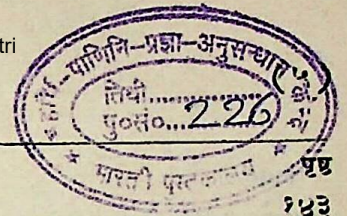 tri
महर्षि-पाणिनि-प्रज्ञा-अनुसन्धान
तिथी............
पु०सं०...226
भारती पुस्तकालय
पृष्ठ
१४३